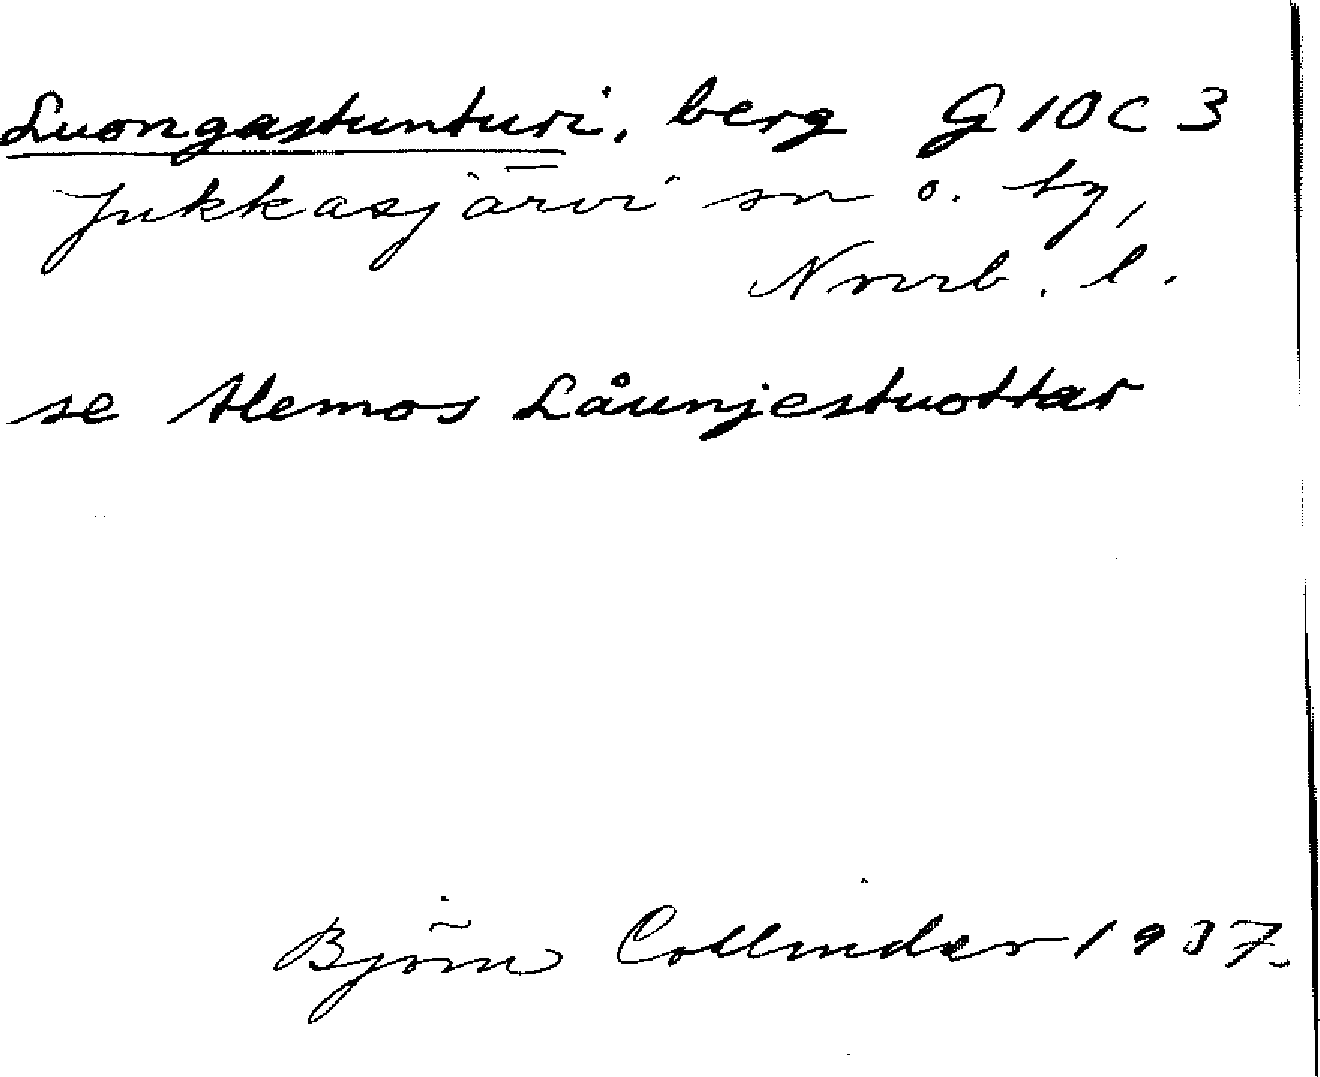 Luongastunturi, berg G 10 C 3
Jukkasjärvi sn o. tg,
Norrb. l.
se Alemos Låunjestuottar
Björn Collinder 1937.